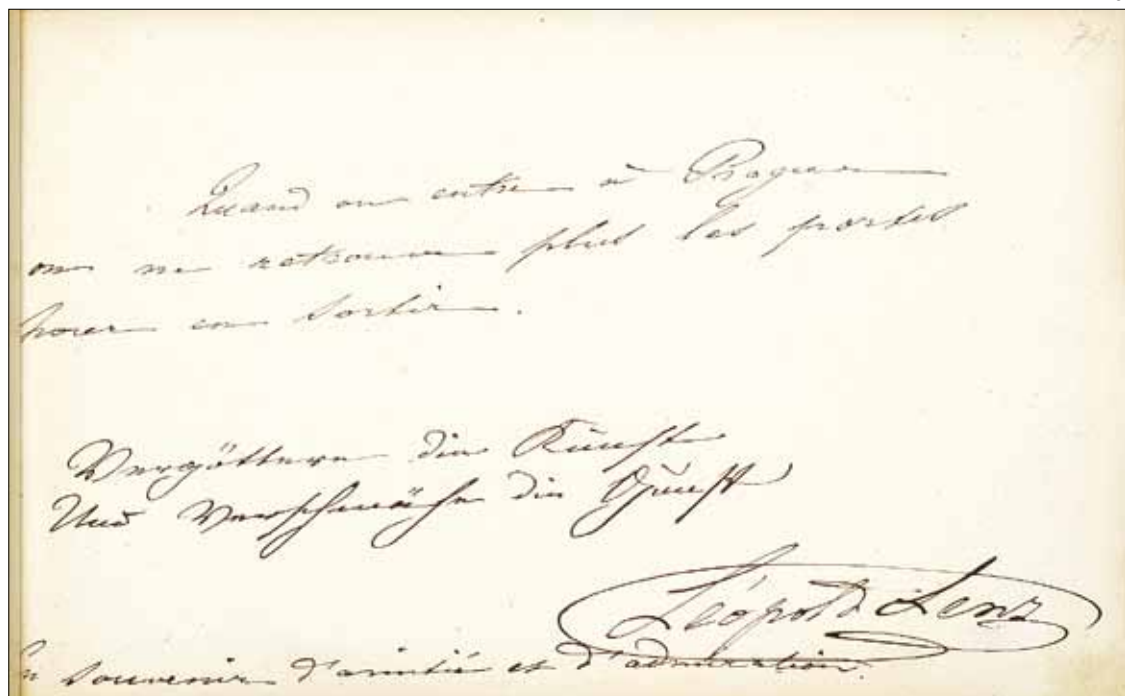 74.
Quand on entre à Prague
on ne retrouve plus les portes
pour en sortir.
Vergöttere die Kunst
Und verschmähe die Gunst
Léopold Lenz
En souvenir d'amitié et d'admiration.